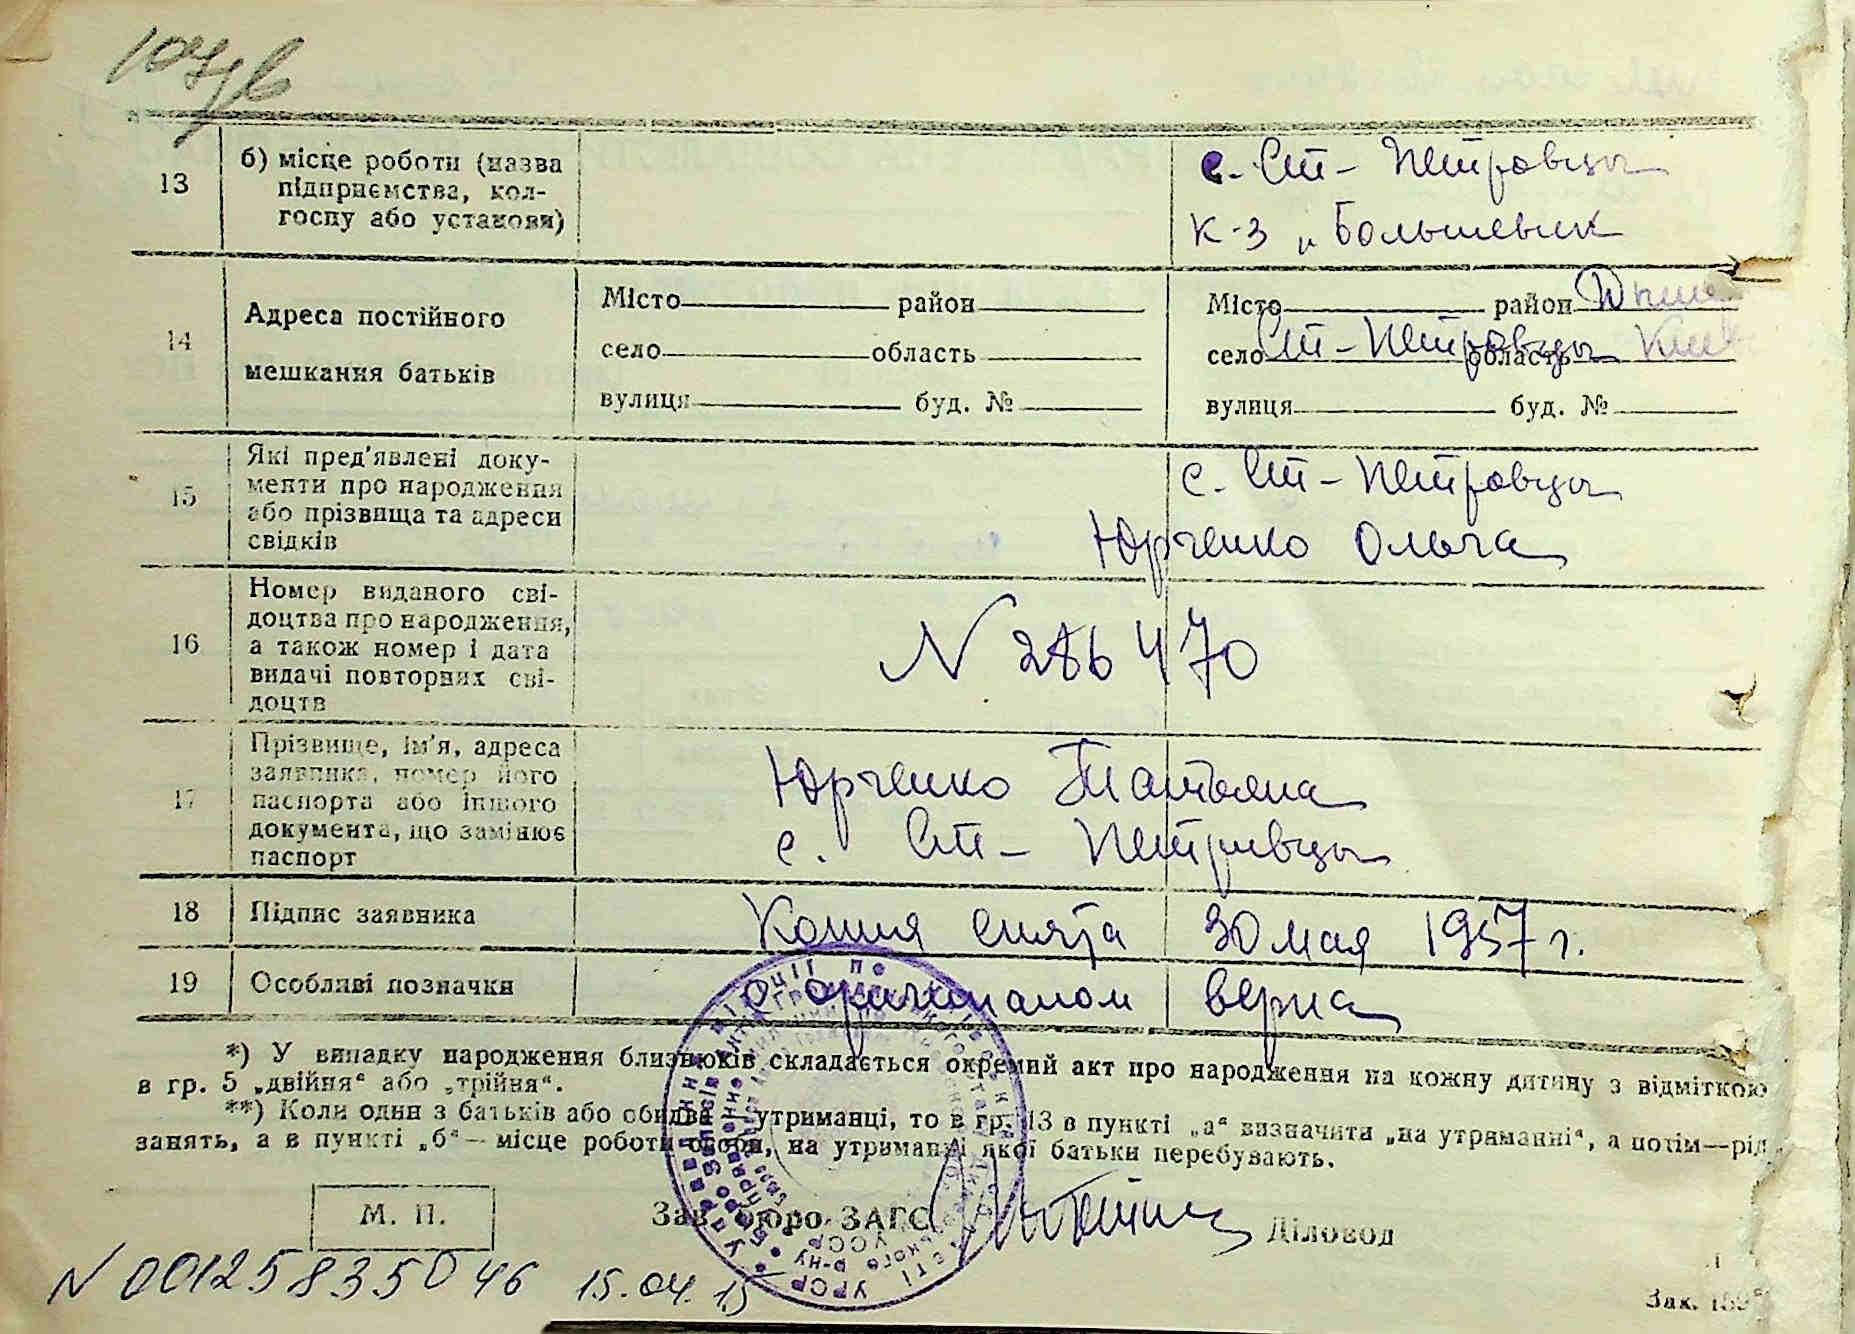 13
б) місце роботи (назва
підприємства, кол-
госпу або установи)
с. Ст- Петровцы
К-з „ Большевик
14
Адреса постійного
мешкання батьків
Місто район
село область
вулиця буд. №
Місто район Выше
село Ст-Петровцы область Киев
вулиця буд. №
15
Які пред'явлені доку-
менти про народження
або прізвища та адреси
свідків
с. Ст-Петровцы
Юрченко Ольга
16
Номер виданого сві-
доцтва про народження,
а також номер і дата
видачі повторних сві-
доцтв
N 286470
17
Прізвище, ім'я, адреса
заявника, номер його
паспорта або іншого
документа, що замінює
паспорт
Юрченко Татьяна
с. Ст- Петривцы
18
Підпис заявника
Копия снята 30 мая 1957 г.
19
Особливі позначки
с оригиналом верна
*) У випадку народження близнюків складається окремий акт про народження на кожну дитину з відміткою
в гр. 5 „двійня“ або „трійня“.
**) Коли один з батьків або обидва утриманці, то в гр. 13 в пункті „а“ визначити „на утриманні“, а потім—рід
занять, а в пункті „б“ — місце роботи особи, на утриманні якої батьки перебувають.
М. П.
Зав. бюро ЗАГС
Діловод
N 00125835046 15.04.15
Зак.